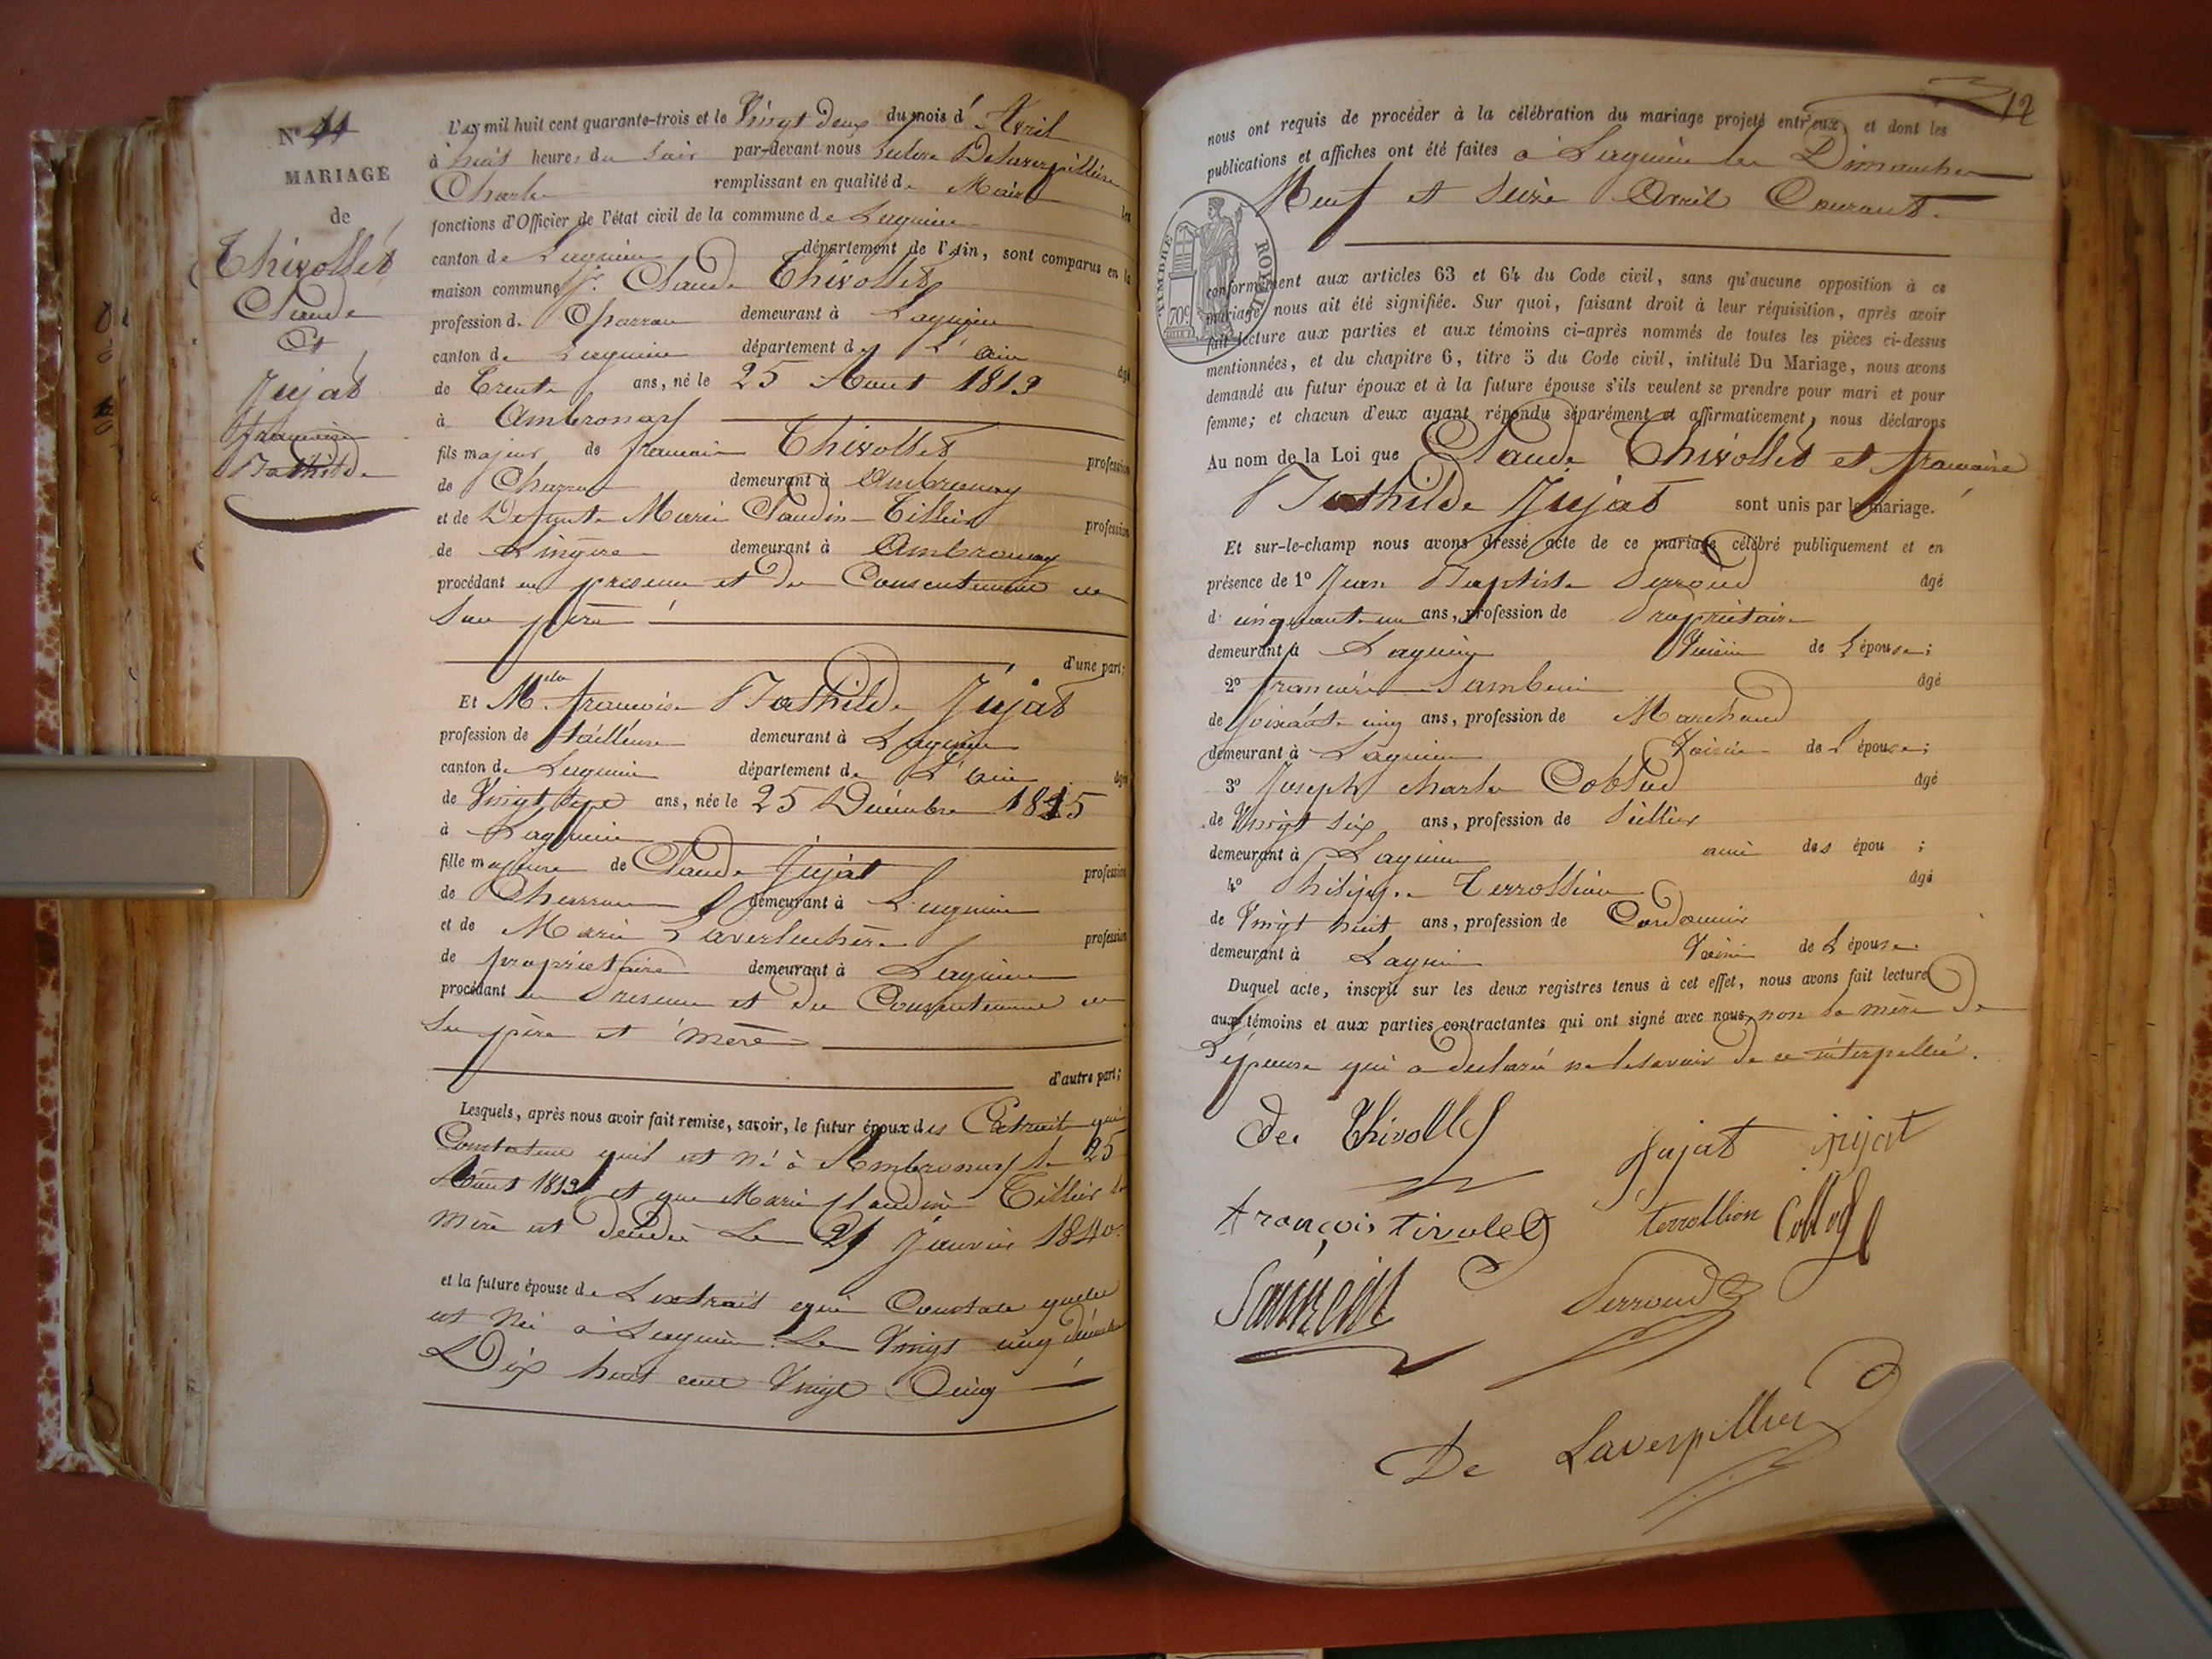 N° 11
MARIAGE
de
Thivollet
Claude
Et
Jujat
françoise
Mathilde
L'an mil huit cent quarante-trois et le Vingt deux du mois d' Avril
à huit heures du Soir par-devant nous Delaverpillière
Charles remplissant en qualité de Maire les
fonctions d'Officier de l'état civil de la commune de Lagnieu
canton de Lagnieu département de l'Ain, sont comparus en la
maison commune Claude Thivollet
profession de Charron demeurant à Lagnieu
canton de Lagnieu département de L'ain âgé
de Trente ans, né le 25 Aout 1812
à Ambronay
fils majeur de françois Thivollet profession
de Charron demeurant à Ambronay
et de Defunte Marie Claudine Tillier profession
de Lingère demeurant à Ambronay
procédant en presence et du Consentement de
Son père
d'une part;
Et Mlle françoise Mathilde Jujat
profession de tailleuse demeurant à Lagnieu
canton de Lagnieu département de L'ain âgée
de Vingt sept ans, née le 25 Décembre 1815
à Lagnieu
fille majeure de Claude Jujat profession
de Charron demeurant à Lagnieu
et de Marie Laverlochère profession
de propriétaire demeurant à Lagnieu
procédant en Presence et du Consentement de
Ses père et mère
d'autre part;
Lesquels, après nous avoir fait remise, savoir, le futur époux des Extraits qui
Constatent quil est né à Ambronay le 25
Aout 1812 et que Marie Claudine Tillier sa
mère est décédée Le 21 Janvier 1840.
et la future épouse de Lextrait qui Constate quelle
est née à Lagnieu Le Vingt cinq décembre
Dix huit cent Vingt Cinq
12
nous ont requis de procéder à la célébration du mariage projeté entr'eux et dont les
publications et affiches ont été faites à Lagnieu les Dimanches
Neuf et Seize Avril Courant.
TIMBRE ROYAL
709
conformément aux articles 63 et 64 du Code civil, sans qu'aucune opposition à ce
mariage nous ait été signifiée. Sur quoi, faisant droit à leur réquisition, après avoir
fait lecture aux parties et aux témoins ci-après nommés de toutes les pièces ci-dessus
mentionnées, et du chapitre 6, titre 5 du Code civil, intitulé Du Mariage, nous avons
demandé au futur époux et à la future épouse s'ils veulent se prendre pour mari et pour
femme; et chacun d'eux ayant répondu séparément et affirmativement, nous déclarons
Au nom de la Loi que Claude Thivollet et françoise
Mathilde Jujat sont unis par le mariage.
Et sur-le-champ nous avons dressé acte de ce mariage célébré publiquement et en
présence de 1° Jean Baptiste Perroud âgé
de cinquante un ans, profession de Propriétaire
demeurant à Lagnieu Voisin de L'épouse;
2° françois âgé
de Soixante cinq ans, profession de Marchand
demeurant à Lagnieu Voisin de L'épouse;
3° Joseph Charles âgé
de Vingt Six ans, profession de Sellier
demeurant à Lagnieu ami des épou ;
4° Philippe Terrollion âgé
de Vingt huit ans, profession de Cordonnier
demeurant à Lagnieu Voisin de L'épouse.
Duquel acte, inscrit sur les deux registres tenus à cet effet, nous avons fait lecture
aux témoins et aux parties contractantes qui ont signé avec nous, non la mère de
L'épouse qui a declaré ne le savoir de ce interpellée.
Thivollet
jujat jujat
françois tivolet terrollion
Perroud
De Laverpillier